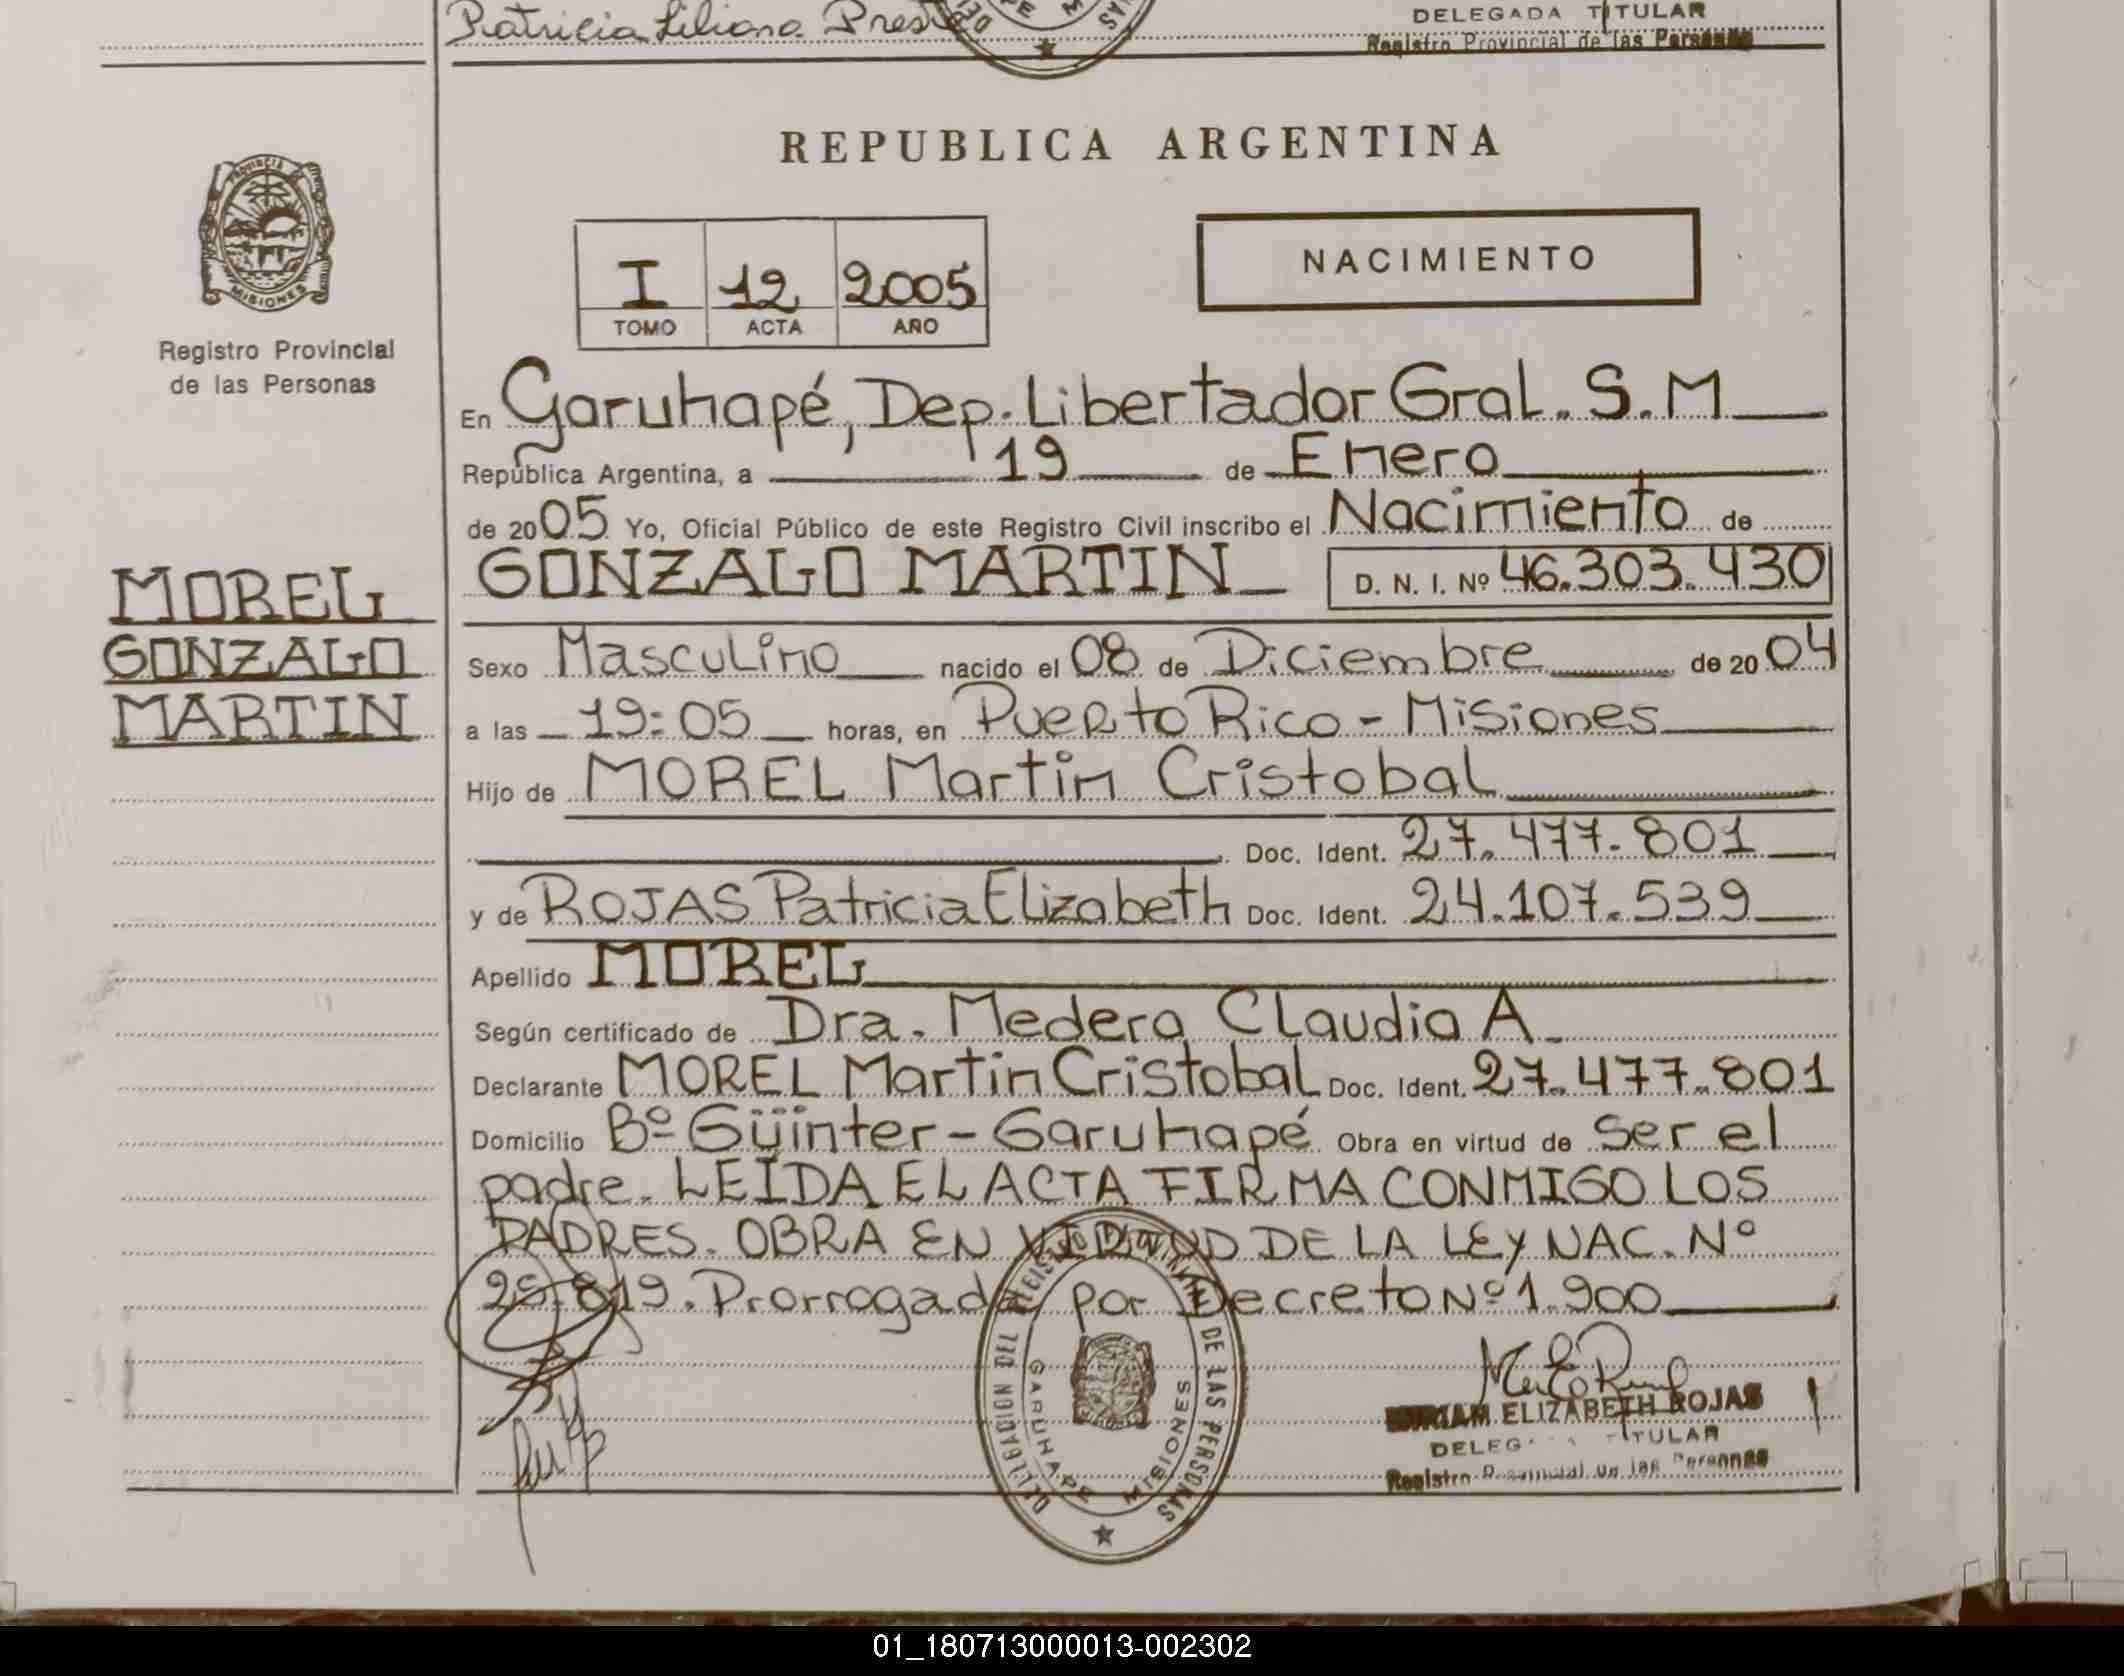 Patricia Liliana Preste
DELEGADA TITULAR
Registro Provincial de las Personas
REPUBLICA ARGENTINA
PROVINCIA DE
MISIONES
Registro Provincial
de las Personas
I 12 2005
TOMO ACTA AÑO
NACIMIENTO
En Garuhapé, Dep. Libertador Gral. S. M
República Argentina, a 19 de Enero
de 2005 Yo, Oficial Público de este Registro Civil inscribo el Nacimiento de
MOREL
GONZALO
MARTIN
GONZALO MARTIN D. N. I. Nº 46.303.430
Sexo Masculino nacido el 08 de Diciembre de 2004
a las 19:05 horas, en Puerto Rico - Misiones
Hijo de MOREL Martin Cristobal
Doc. Ident. 27.477.801
y de ROJAS Patricia Elizabeth Doc. Ident. 24.107.539
Apellido MOREL
Según certificado de Dra. Medero Claudia A.
Declarante MOREL Martin Cristobal Doc. Ident. 27.477.801
Domicilio Bº Güinter - Garuhapé Obra en virtud de ser el
padre. LEIDA EL ACTA FIRMA CONMIGO LOS
PADRES. OBRA EN VIRTUD DE LA LEY NAC. Nº
25.819. Prorrogada por Decreto Nº 1.900
DELEGACION DEL REGISTRO PROVINCIAL DE LAS PERSONAS
GARUHAPE MISIONES
MIRIAM ELIZABETH ROJAS
DELEGADA TITULAR
Registro Provincial de las Personas
01_180713000013-002302